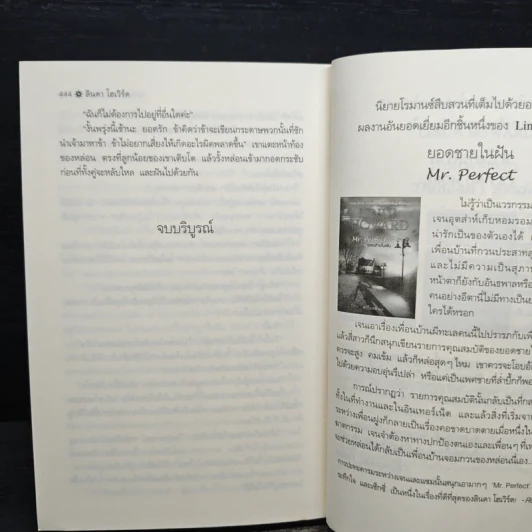 444 ❂ ลินดา โฮเวิร์ด
"ฉันก็ไม่ต้องการไปอยู่ที่อื่นใดค่ะ"
"งั้นพรุ่งนี้เช้านะ ยอดรัก ข้าคิดว่าข้าจะเขียนกระดาษพวกนั้นที่ชัก
นำเจ้ามาหาข้า ข้าไม่อยากเสี่ยงให้เกิดอะไรผิดพลาดขึ้น" เขาแตะหน้าท้อง
ของหล่อน ตรงที่ลูกน้อยของเขาเติบโต แล้วรั้งหล่อนเข้ามากอดกระชับ
ก่อนที่ทั้งคู่จะหลับใหล และฝันไปด้วยกัน
จบบริบูรณ์
นิยายโรมานซ์สืบสวนที่เต็มไปด้วย
ผลงานอันยอดเยี่ยมอีกชิ้นหนึ่งของ Lin
ยอดชายในฝัน
Mr. Perfect
HOWARD
Mr. Perfect
ไม่รู้ว่าเป็นเวรกรรม
เจนอุตส่าห์เก็บหอมรอม
น่ารักเป็นของตัวเองได้
เพื่อนบ้านที่กวนประสาท
และไม่มีความเป็นสุภา
หน้าตาก็ยังกับอันธพาลหรือ
คนอย่างอีตานี่ไม่มีทางเป็น
ใครได้หรอก
เจนเอาเรื่องเพื่อนบ้านมีทะเลคนนี้ไปปรารภกับ
แล้วสี่สาวก็นึกสนุกเขียนรายการคุณสมบัติของยอดชาย
ควรจะสูง คมเข้ม แล้วก็หล่อสุดๆ ไหม เขาควรจะ
ไปด้วยความอบอุ่นรึเปล่า หรือแค่เป็นเพศชายที่
การณ์ปรากฏว่า รายการคุณสมบัตินั้นกลับเป็นที่
ทั้งในที่ทำงานและในอินเทอร์เน็ต และแล้วสิ่งที่เริ่ม
ระหว่างเพื่อนฝูงก็กลายเป็นเรื่องคอขาดบาดตายเมื่อหนึ่งใน
ฆาตกรรม เจนจำต้องหาทางปกป้องตนเองและเพื่อนๆ
จะช่วยหล่อนได้กลับเป็นเพื่อนบ้านจอมกวนของหล่อนนี่เอง
การปะทะคารมระหว่างเจนและแซมนั้นสนุกเอามากๆ 'Mr. Perfect'
ระทึกใจ และเซ็กซี่ เป็นหนึ่งในเรื่องที่ดีที่สุดของลินดา โฮเวิร์ด!